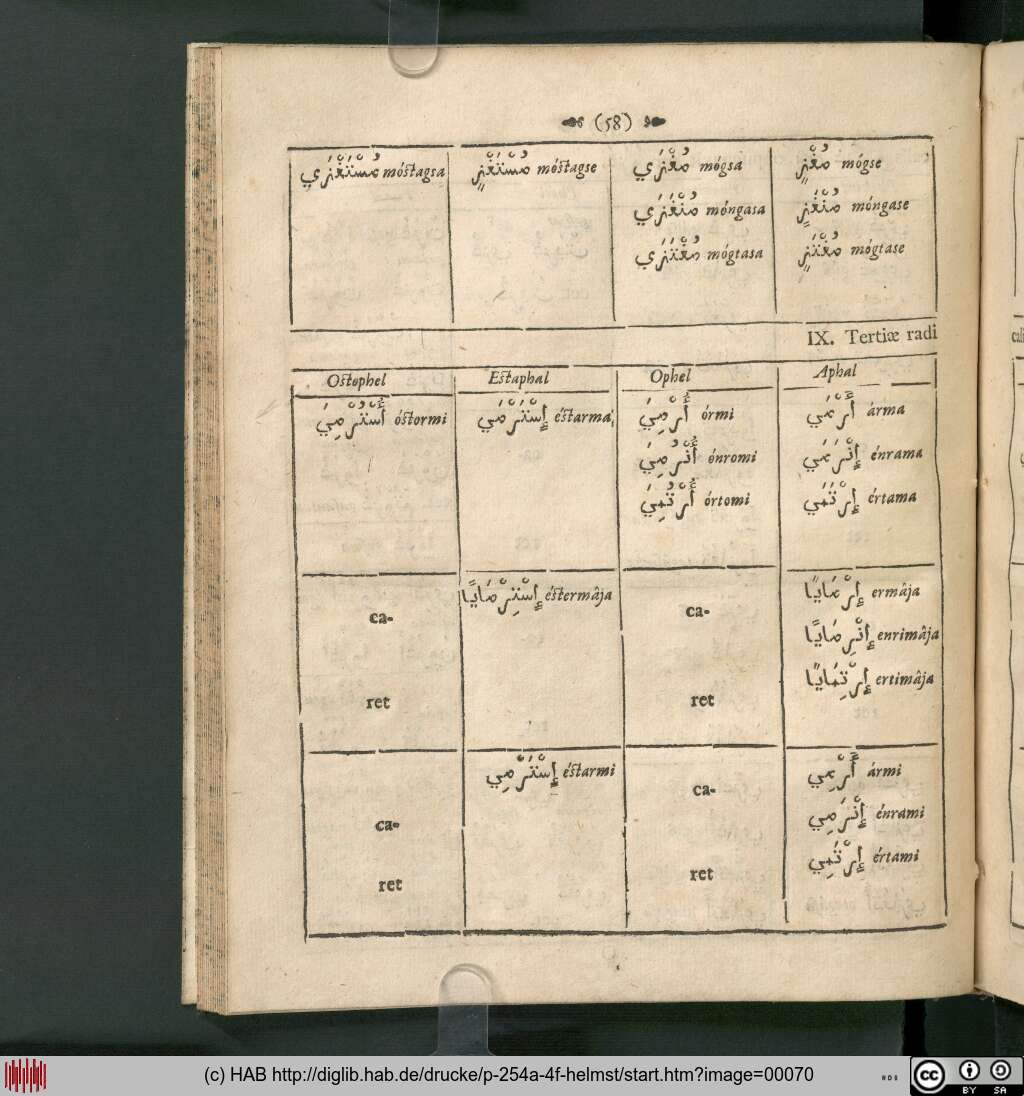 (58)
مُسْتَغْزَي móstagsa مُسْتَغْزٍ móstagse مُغْزَي mógsa مُغْزٍ mógse
مُنْغَزَي móngasa مُنْغَزٍ móngase
مُغْتَزَي mógtasa مُغْتَزٍ mógtase
IX. Tertiæ radi
Ostophel Estaphal Ophel Aphal
أُسْتُرْمِيَ óstormi إِسْتَرْمَيَ éstarma, أُرْمِيَ órmi أَرْمَيَ árma
أُنْرُمِيَ ónromi إِنْرَمَيَ énrama
أُرْتُمِيَ órtomi إِرْتَمَيَ értama
ca- إِسْتِرْمَايًا éstermâja ca- إِرْمَايًا ermâja
إِنْرِمَايًا enrimâja
ret ret إِرْتِمَايًا ertimâja
إِسْتَرْمِي éstarmi أَرْمِي ármi
ca- ca- إِنْرَمِي énrami
ret ret إِرْتَمِي értami
(c) HAB http://diglib.hab.de/drucke/p-254a-4f-helmst/start.htm?image=00070
cc BY SA